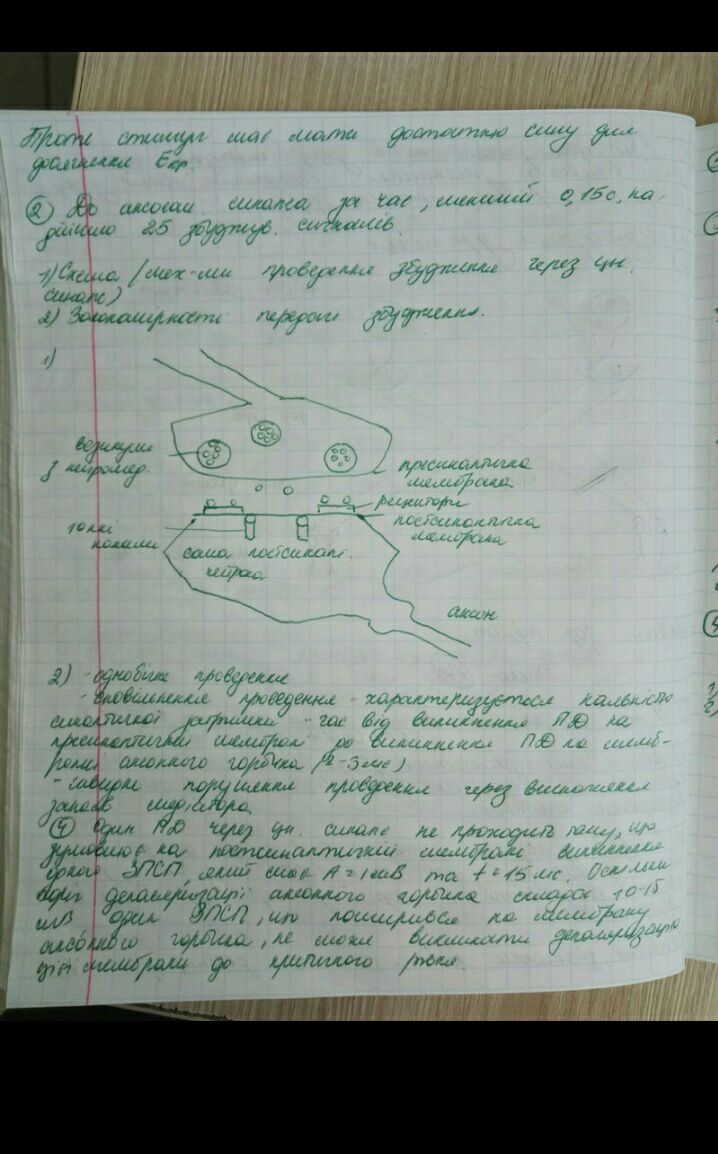 Проте стимул має мати достатню силу для
досягнення Екр.
② До аксосом. синапса за час, менший 0,15с, на-
дійшло 25 збуджув. сигналів.
1) Схема (мех-ми проведення збудження через цн.
синапс)
2) Закономірності передачі збудження.
1)
везикули
з нейромед.
пресинаптична
мембрана
рецептори
постсинаптична
мембрана
іонні
канали
сома постсинапт.
нейрона
аксон
2) - однобічне проведення
- сповільнення проведення - характеризується наявністю
синаптичної затримки - час від виникнення ПД на
пресинаптичній мембрані до виникнення ПД на мемб-
рані аксонного горбика (2-3мс)
- швидке порушення проведення через виснаження
запасів медіатора
④ Один ПД через цн. синапс не проходить тому, що
зумовлює на постсинаптичній мембрані виникнення
одного ЗПСП, який має А=1мВ та t=15мс. Оскільки
деполяризації аксонного горбика складає 10-15
мВ один ЗПСП, що поширився на мембрану
аксонного горбика, не може викликати деполяризацію
цієї мембрани до критичного рівня.